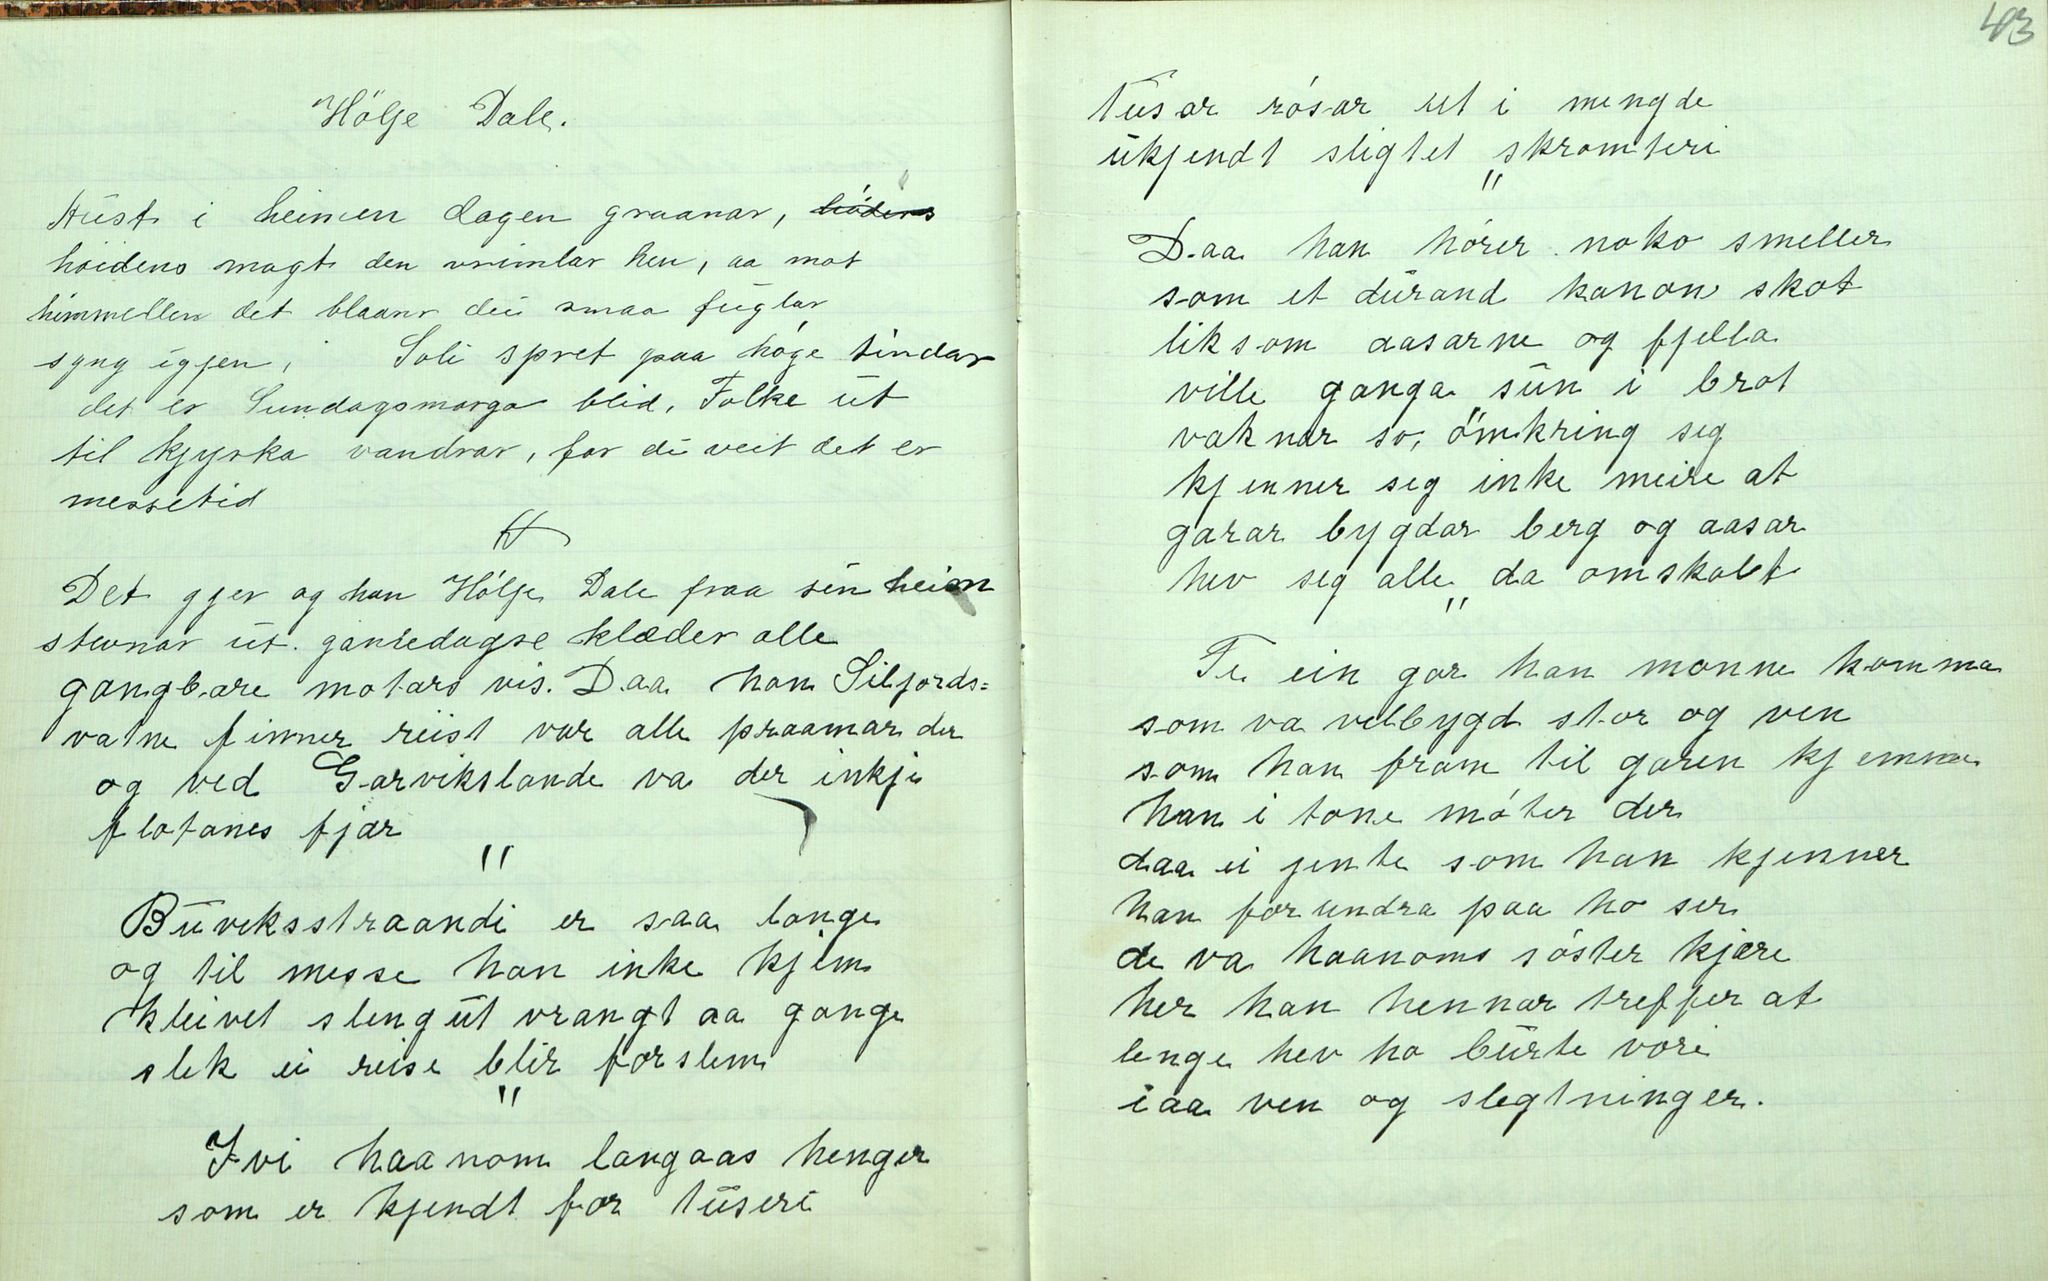 Hölje Dale.
Hüst i heimen dagen graanar, höidens
höidens magt den vrimlar hen, aa mot
himmellen det blaanr dei smaa füglar
syng igjen, Soli spret paa höge tindar
det er Sundagsmorgo blid, Folke üt
til kjyrka vandrar, for di veit det er
messetid
Det gjer og han Hölje Dale fraa sin heim
stevnar üt. gamledagse klæder alle
gangbare motars vis. Daa han Siljords=
vatne finner reist var alle praamar der
og ved Garvikslande va der inkje
flotanes fjær
"
Büveksstraandi er saa lange
og til messe han inke kjem
kleivet slengüt vrangt aa gange
slek ei reise blir forslem
"
Ivi haanom langaas henger
som er kjendt for tüseri
43
Tüsar rósar ut i mengde
ükjendt sligtet skromteri
"
Daa han hórer noko smeller
som et dürand kanon skot
liksom aasarne og fjella
ville ganga sün i brot
vaknar so, ömkring seg
kjenner seg inke meire at
garar bygdar berg og aasar
hev seg alle da omskabt
"
Te ein gar han monne komma
som va velbygd stor og ven
som han fram til garen kjemma
han i tone móter der
daa ei jente som han kjenner
han forundra paa ho ser
de va haanoms sóster kjære
her han hennar treffer at
lenge hev ho bürte vore
iaa ven og slegtninger.